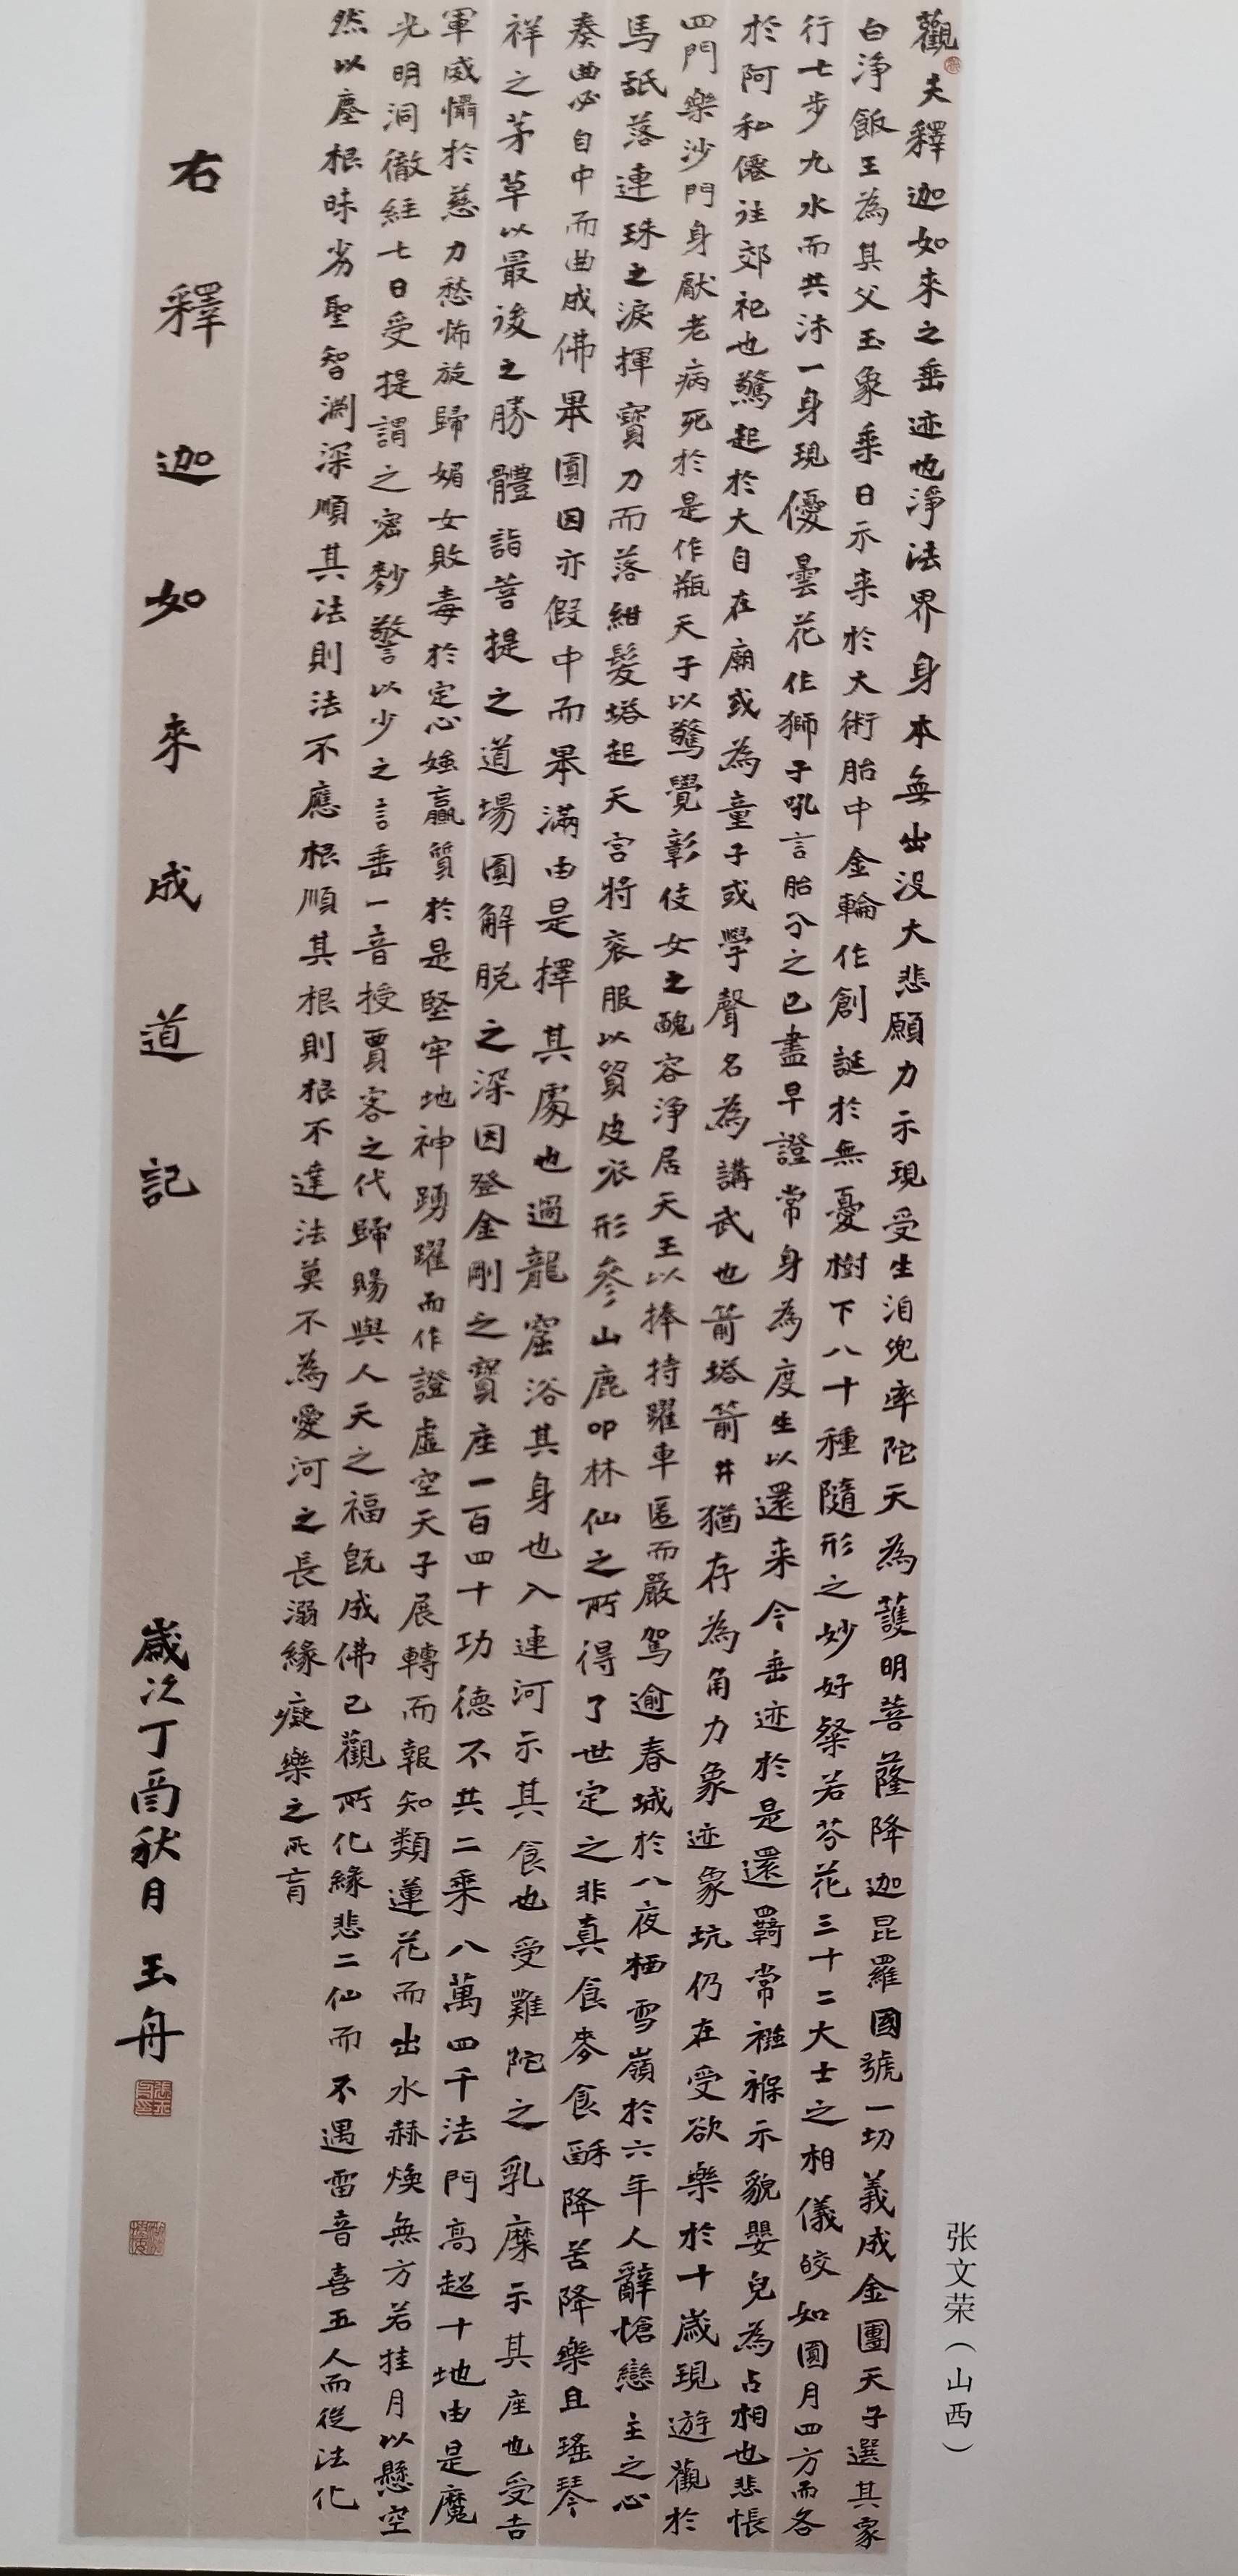 觀夫釋迦如來之垂迹也淨法界身本無出沒大悲願力示現受生洎兜率陀天為護明菩薩降迦毘羅國號一切義成金團天子選其家
白淨飯王為其父玉象乘日示来於大術胎中金輪作創誕於無憂樹下八十種隨形之妙好粲若芬花三十二大士之相儀皎如圓月四方而各
行七步九水而共沐一身現優曇花作獅子吼言胎分之已盡早證常身為度生以還来今垂迹於是還羇常襁褓示貌嬰兒為占相也悲悵
於阿私僊往郊祀也驚起於大自在廟或為童子或學聲名為講武也箭塔箭井猶存為角力象迹象坑仍在受欲樂於十歲現遊觀於
四門樂沙門身厭老病死於是作瓶天子以驚覺彰伎女之醜容淨居天王以捧持躍車匿而嚴駕逾春城於八夜栖雪嶺於六年人辭愴戀主之心
馬舐落連珠之淚揮寶刀而落紺髮塔起天宮將衮服以貿皮衣形參山鹿叩林仙之所得了世定之非真食麥食酥降苦降樂且瑤琴
奏曲必自中而曲成佛果圓因亦假中而果滿由是擇其處也過龍窟浴其身也入連河示其食也受難陀之乳糜示其座也受吉
祥之茅草以最後之勝體詣菩提之道場圓解脫之深因登金剛之寶座一百四十功德不共二乘八萬四千法門高超十地由是魔
軍威懾於慈力愁怖旋歸媚女敗毒於定心尪羸質於是堅牢地神踴躍而作證虛空天子展轉而報知類蓮花而出水赫煥無方若挂月以懸空
光明洞徹経七日受提謂之密麨警以少之言垂一音授賈客之代歸賜與人天之福既成佛已觀所化緣悲二仙而不遇雷音喜五人而從法化
然以塵根昧劣聖智淵深順其法則法不應根順其根則根不達法莫不為愛河之長溺緣癡樂之所盲
右釋迦如來成道記
歲次丁酉秋月玉舟
张文荣（山西）